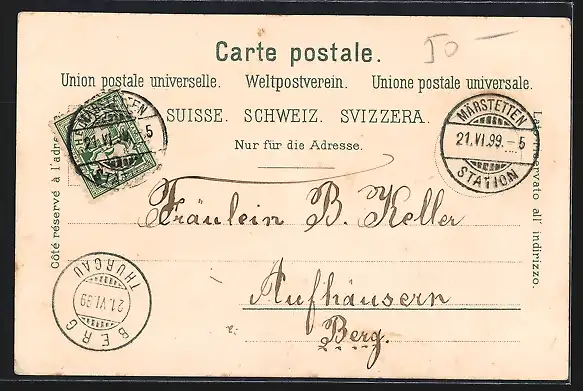 50 —
Carte postale.
Union postale universelle. Weltpostverein. Unione postale universale.
SUISSE. SCHWEIZ. SVIZZERA.
Nur für die Adresse.
21.VI
5
MÄRSTETTEN
21.VI.99.–5
STATION
Côté réservé à l'adre
Lato riservato all' indirizzo.
Fräulein B. Keller
Aufhäusern
Berg.
BERG
21.VI.99
THURGAU